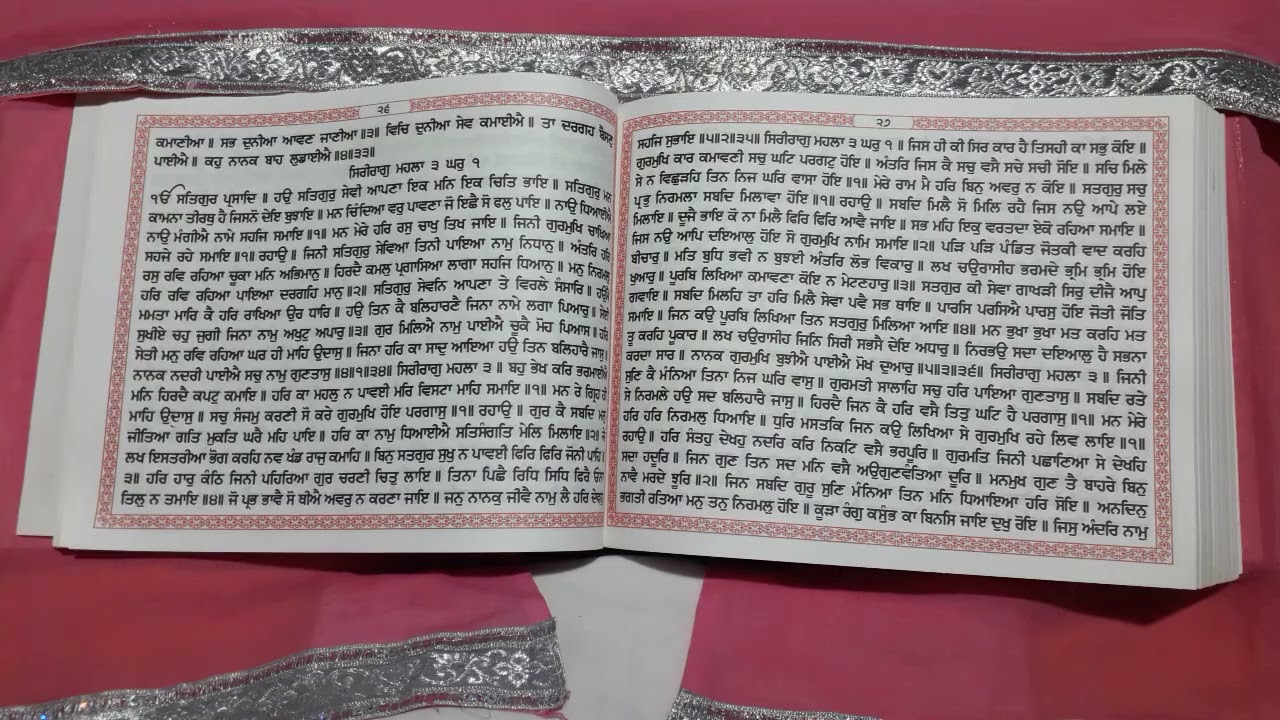 ੨੬
ਕਮਾਣੀਆ॥ ਸਭ ਦੁਨੀਆ ਆਵਣ ਜਾਣੀਆ॥੩॥ ਵਿਚਿ ਦੁਨੀਆ ਸੇਵ ਕਮਾਈਐ॥ ਤਾ ਦਰਗਹ ਬੈਸਣੁ
ਪਾਈਐ॥ ਕਹੁ ਨਾਨਕ ਬਾਹ ਲੁਡਾਈਐ॥੪॥੩੩॥
ਸਿਰੀਰਾਗੁ ਮਹਲਾ ੩ ਘਰੁ ੧
ੴ ਸਤਿਗੁਰ ਪ੍ਰਸਾਦਿ॥ ਹਉ ਸਤਿਗੁਰੁ ਸੇਵੀ ਆਪਣਾ ਇਕ ਮਨਿ ਇਕ ਚਿਤਿ ਭਾਇ॥ ਸਤਿਗੁਰੁ ਮਨ
ਕਾਮਨਾ ਤੀਰਥੁ ਹੈ ਜਿਸਨੋ ਦੇਇ ਬੁਝਾਇ॥ ਮਨ ਚਿੰਦਿਆ ਵਰੁ ਪਾਵਣਾ ਜੋ ਇਛੈ ਸੋ ਫਲੁ ਪਾਇ॥ ਨਾਉ ਧਿਆਈਐ
ਨਾਉ ਮੰਗੀਐ ਨਾਮੇ ਸਹਜਿ ਸਮਾਇ॥੧॥ ਮਨ ਮੇਰੇ ਹਰਿ ਰਸੁ ਚਾਖੁ ਤਿਖ ਜਾਇ॥ ਜਿਨੀ ਗੁਰਮੁਖਿ ਚਾਖਿਆ
ਸਹਜੇ ਰਹੇ ਸਮਾਇ॥੧॥ ਰਹਾਉ॥ ਜਿਨੀ ਸਤਿਗੁਰੁ ਸੇਵਿਆ ਤਿਨੀ ਪਾਇਆ ਨਾਮੁ ਨਿਧਾਨੁ॥ ਅੰਤਰਿ ਹਰਿ
ਰਸੁ ਰਵਿ ਰਹਿਆ ਚੂਕਾ ਮਨਿ ਅਭਿਮਾਨੁ॥ ਹਿਰਦੈ ਕਮਲੁ ਪ੍ਰਗਾਸਿਆ ਲਾਗਾ ਸਹਜਿ ਧਿਆਨੁ॥ ਮਨੁ ਨਿਰਮਲੁ
ਹਰਿ ਰਵਿ ਰਹਿਆ ਪਾਇਆ ਦਰਗਹਿ ਮਾਨੁ॥੨॥ ਸਤਿਗੁਰੁ ਸੇਵਨਿ ਆਪਣਾ ਤੇ ਵਿਰਲੇ ਸੰਸਾਰਿ॥ ਹਉਮੈ
ਮਮਤਾ ਮਾਰਿ ਕੈ ਹਰਿ ਰਾਖਿਆ ਉਰ ਧਾਰਿ॥ ਹਉ ਤਿਨ ਕੈ ਬਲਿਹਾਰਣੈ ਜਿਨਾ ਨਾਮੇ ਲਗਾ ਪਿਆਰੁ॥ ਸੇਈ
ਸੁਖੀਏ ਚਹੁ ਜੁਗੀ ਜਿਨਾ ਨਾਮੁ ਅਖੁਟੁ ਅਪਾਰੁ॥੩॥ ਗੁਰ ਮਿਲਿਐ ਨਾਮੁ ਪਾਈਐ ਚੂਕੈ ਮੋਹ ਪਿਆਸ॥ ਹਰਿ
ਸੇਤੀ ਮਨੁ ਰਵਿ ਰਹਿਆ ਘਰ ਹੀ ਮਾਹਿ ਉਦਾਸੁ॥ ਜਿਨਾ ਹਰਿ ਕਾ ਸਾਦੁ ਆਇਆ ਹਉ ਤਿਨ ਬਲਿਹਾਰੈ ਜਾਸੁ॥
ਨਾਨਕ ਨਦਰੀ ਪਾਈਐ ਸਚੁ ਨਾਮੁ ਗੁਣਤਾਸੁ॥੪॥੧॥੩੪॥ ਸਿਰੀਰਾਗੁ ਮਹਲਾ ੩॥ ਬਹੁ ਭੇਖ ਕਰਿ ਭਰਮਾਈਐ
ਮਨਿ ਹਿਰਦੈ ਕਪਟੁ ਕਮਾਇ॥ ਹਰਿ ਕਾ ਮਹਲੁ ਨ ਪਾਵਈ ਮਰਿ ਵਿਸਟਾ ਮਾਹਿ ਸਮਾਇ॥੧॥ ਮਨ ਰੇ ਗ੍ਰਿਹ ਹੀ
ਮਾਹਿ ਉਦਾਸੁ॥ ਸਚੁ ਸੰਜਮੁ ਕਰਣੀ ਸੋ ਕਰੇ ਗੁਰਮੁਖਿ ਹੋਇ ਪਰਗਾਸੁ॥੧॥ ਰਹਾਉ॥ ਗੁਰ ਕੈ ਸਬਦਿ ਮਨੁ
ਜੀਤਿਆ ਗਤਿ ਮੁਕਤਿ ਘਰੈ ਮਹਿ ਪਾਇ॥ ਹਰਿ ਕਾ ਨਾਮੁ ਧਿਆਈਐ ਸਤਿਸੰਗਤਿ ਮੇਲਿ ਮਿਲਾਇ॥੨॥ ਜੇ
ਲਖ ਇਸਤਰੀਆ ਭੋਗ ਕਰਹਿ ਨਵ ਖੰਡ ਰਾਜੁ ਕਮਾਹਿ॥ ਬਿਨੁ ਸਤਗੁਰ ਸੁਖੁ ਨ ਪਾਵਈ ਫਿਰਿ ਫਿਰਿ ਜੋਨੀ ਪਾਹਿ॥
੩॥ ਹਰਿ ਹਾਰੁ ਕੰਠਿ ਜਿਨੀ ਪਹਿਰਿਆ ਗੁਰ ਚਰਣੀ ਚਿਤੁ ਲਾਇ॥ ਤਿਨਾ ਪਿਛੈ ਰਿਧਿ ਸਿਧਿ ਫਿਰੈ ਓਨਾ
ਤਿਲੁ ਨ ਤਮਾਇ॥੪॥ ਜੋ ਪ੍ਰਭ ਭਾਵੈ ਸੋ ਥੀਐ ਅਵਰੁ ਨ ਕਰਣਾ ਜਾਇ॥ ਜਨੁ ਨਾਨਕੁ ਜੀਵੈ ਨਾਮੁ ਲੈ ਹਰਿ ਦੇਵਹੁ
੨੭
ਸਹਜਿ ਸੁਭਾਇ॥੫॥੨॥੩੫॥ ਸਿਰੀਰਾਗੁ ਮਹਲਾ ੩ ਘਰੁ ੧॥ ਜਿਸ ਹੀ ਕੀ ਸਿਰਕਾਰ ਹੈ ਤਿਸਹੀ ਕਾ ਸਭੁ ਕੋਇ॥
ਗੁਰਮੁਖਿ ਕਾਰ ਕਮਾਵਣੀ ਸਚੁ ਘਟਿ ਪਰਗਟੁ ਹੋਇ॥ ਅੰਤਰਿ ਜਿਸ ਕੈ ਸਚੁ ਵਸੈ ਸਚੇ ਸਚੀ ਸੋਇ॥ ਸਚਿ ਮਿਲੇ
ਸੇ ਨ ਵਿਛੁੜਹਿ ਤਿਨ ਨਿਜ ਘਰਿ ਵਾਸਾ ਹੋਇ॥੧॥ ਮੇਰੇ ਰਾਮ ਮੈ ਹਰਿ ਬਿਨੁ ਅਵਰੁ ਨ ਕੋਇ॥ ਸਤਗੁਰੁ ਸਚੁ
ਪ੍ਰਭੁ ਨਿਰਮਲਾ ਸਬਦਿ ਮਿਲਾਵਾ ਹੋਇ॥੧॥ ਰਹਾਉ॥ ਸਬਦਿ ਮਿਲੈ ਸੋ ਮਿਲਿ ਰਹੈ ਜਿਸ ਨਉ ਆਪੇ ਲਏ
ਮਿਲਾਇ॥ ਦੂਜੈ ਭਾਇ ਕੋ ਨਾ ਮਿਲੈ ਫਿਰਿ ਫਿਰਿ ਆਵੈ ਜਾਇ॥ ਸਭ ਮਹਿ ਇਕੁ ਵਰਤਦਾ ਏਕੋ ਰਹਿਆ ਸਮਾਇ॥
ਜਿਸ ਨਉ ਆਪਿ ਦਇਆਲੁ ਹੋਇ ਸੋ ਗੁਰਮੁਖਿ ਨਾਮਿ ਸਮਾਇ॥੨॥ ਪੜਿ ਪੜਿ ਪੰਡਿਤ ਜੋਤਕੀ ਵਾਦ ਕਰਹਿ
ਬੀਚਾਰੁ॥ ਮਤਿ ਬੁਧਿ ਭਵੀ ਨ ਬੁਝਈ ਅੰਤਰਿ ਲੋਭ ਵਿਕਾਰੁ॥ ਲਖ ਚਉਰਾਸੀਹ ਭਰਮਦੇ ਭ੍ਰਮਿ ਭ੍ਰਮਿ ਹੋਇ
ਖੁਆਰੁ॥ ਪੂਰਬਿ ਲਿਖਿਆ ਕਮਾਵਣਾ ਕੋਇ ਨ ਮੇਟਣਹਾਰੁ॥੩॥ ਸਤਗੁਰ ਕੀ ਸੇਵਾ ਗਾਖੜੀ ਸਿਰੁ ਦੀਜੈ ਆਪੁ
ਗਵਾਇ॥ ਸਬਦਿ ਮਿਲਹਿ ਤਾ ਹਰਿ ਮਿਲੈ ਸੇਵਾ ਪਵੈ ਸਭ ਥਾਇ॥ ਪਾਰਸਿ ਪਰਸਿਐ ਪਾਰਸੁ ਹੋਇ ਜੋਤੀ ਜੋਤਿ
ਸਮਾਇ॥ ਜਿਨ ਕਉ ਪੂਰਬਿ ਲਿਖਿਆ ਤਿਨ ਸਤਗੁਰੁ ਮਿਲਿਆ ਆਇ॥੪॥ ਮਨ ਭੁਖਾ ਭੁਖਾ ਮਤ ਕਰਹਿ ਮਤ
ਤੂ ਕਰਹਿ ਪੂਕਾਰ॥ ਲਖ ਚਉਰਾਸੀਹ ਜਿਨਿ ਸਿਰੀ ਸਭਸੈ ਦੇਇ ਅਧਾਰੁ॥ ਨਿਰਭਉ ਸਦਾ ਦਇਆਲੁ ਹੈ ਸਭਨਾ
ਕਰਦਾ ਸਾਰ॥ ਨਾਨਕ ਗੁਰਮੁਖਿ ਬੁਝੀਐ ਪਾਈਐ ਮੋਖ ਦੁਆਰੁ॥੫॥੩॥੩੬॥ ਸਿਰੀਰਾਗੁ ਮਹਲਾ ੩॥ ਜਿਨੀ
ਸੁਣਿ ਕੈ ਮੰਨਿਆ ਤਿਨਾ ਨਿਜ ਘਰਿ ਵਾਸੁ॥ ਗੁਰਮਤੀ ਸਾਲਾਹਿ ਸਚੁ ਹਰਿ ਪਾਇਆ ਗੁਣਤਾਸੁ॥ ਸਬਦਿ ਰਤੇ
ਸੇ ਨਿਰਮਲੇ ਹਉ ਸਦ ਬਲਿਹਾਰੈ ਜਾਸੁ॥ ਹਿਰਦੈ ਜਿਨ ਕੈ ਹਰਿ ਵਸੈ ਤਿਤੁ ਘਟਿ ਹੈ ਪਰਗਾਸੁ॥੧॥ ਮਨ ਮੇਰੇ
ਹਰਿ ਹਰਿ ਨਿਰਮਲੁ ਧਿਆਇ॥ ਧੁਰਿ ਮਸਤਕਿ ਜਿਨ ਕਉ ਲਿਖਿਆ ਸੇ ਗੁਰਮੁਖਿ ਰਹੇ ਲਿਵ ਲਾਇ॥੧॥
ਰਹਾਉ॥ ਹਰਿ ਸੰਤਹੁ ਦੇਖਹੁ ਨਦਰਿ ਕਰਿ ਨਿਕਟਿ ਵਸੈ ਭਰਪੂਰਿ॥ ਗੁਰਮਤਿ ਜਿਨੀ ਪਛਾਣਿਆ ਸੇ ਦੇਖਹਿ
ਸਦਾ ਹਦੂਰਿ॥ ਜਿਨ ਗੁਣ ਤਿਨ ਸਦ ਮਨਿ ਵਸੈ ਅਉਗੁਣਵੰਤਿਆ ਦੂਰਿ॥ ਮਨਮੁਖ ਗੁਣ ਤੈ ਬਾਹਰੇ ਬਿਨੁ
ਨਾਵੈ ਮਰਦੇ ਝੂਰਿ॥੨॥ ਜਿਨ ਸਬਦਿ ਗੁਰੂ ਸੁਣਿ ਮੰਨਿਆ ਤਿਨ ਮਨਿ ਧਿਆਇਆ ਹਰਿ ਸੋਇ॥ ਅਨਦਿਨੁ
ਭਗਤੀ ਰਤਿਆ ਮਨੁ ਤਨੁ ਨਿਰਮਲੁ ਹੋਇ॥ ਕੂੜਾ ਰੰਗੁ ਕਸੁੰਭ ਕਾ ਬਿਨਸਿ ਜਾਇ ਦੁਖੁ ਰੋਇ॥ ਜਿਸੁ ਅੰਦਰਿ ਨਾਮੁ